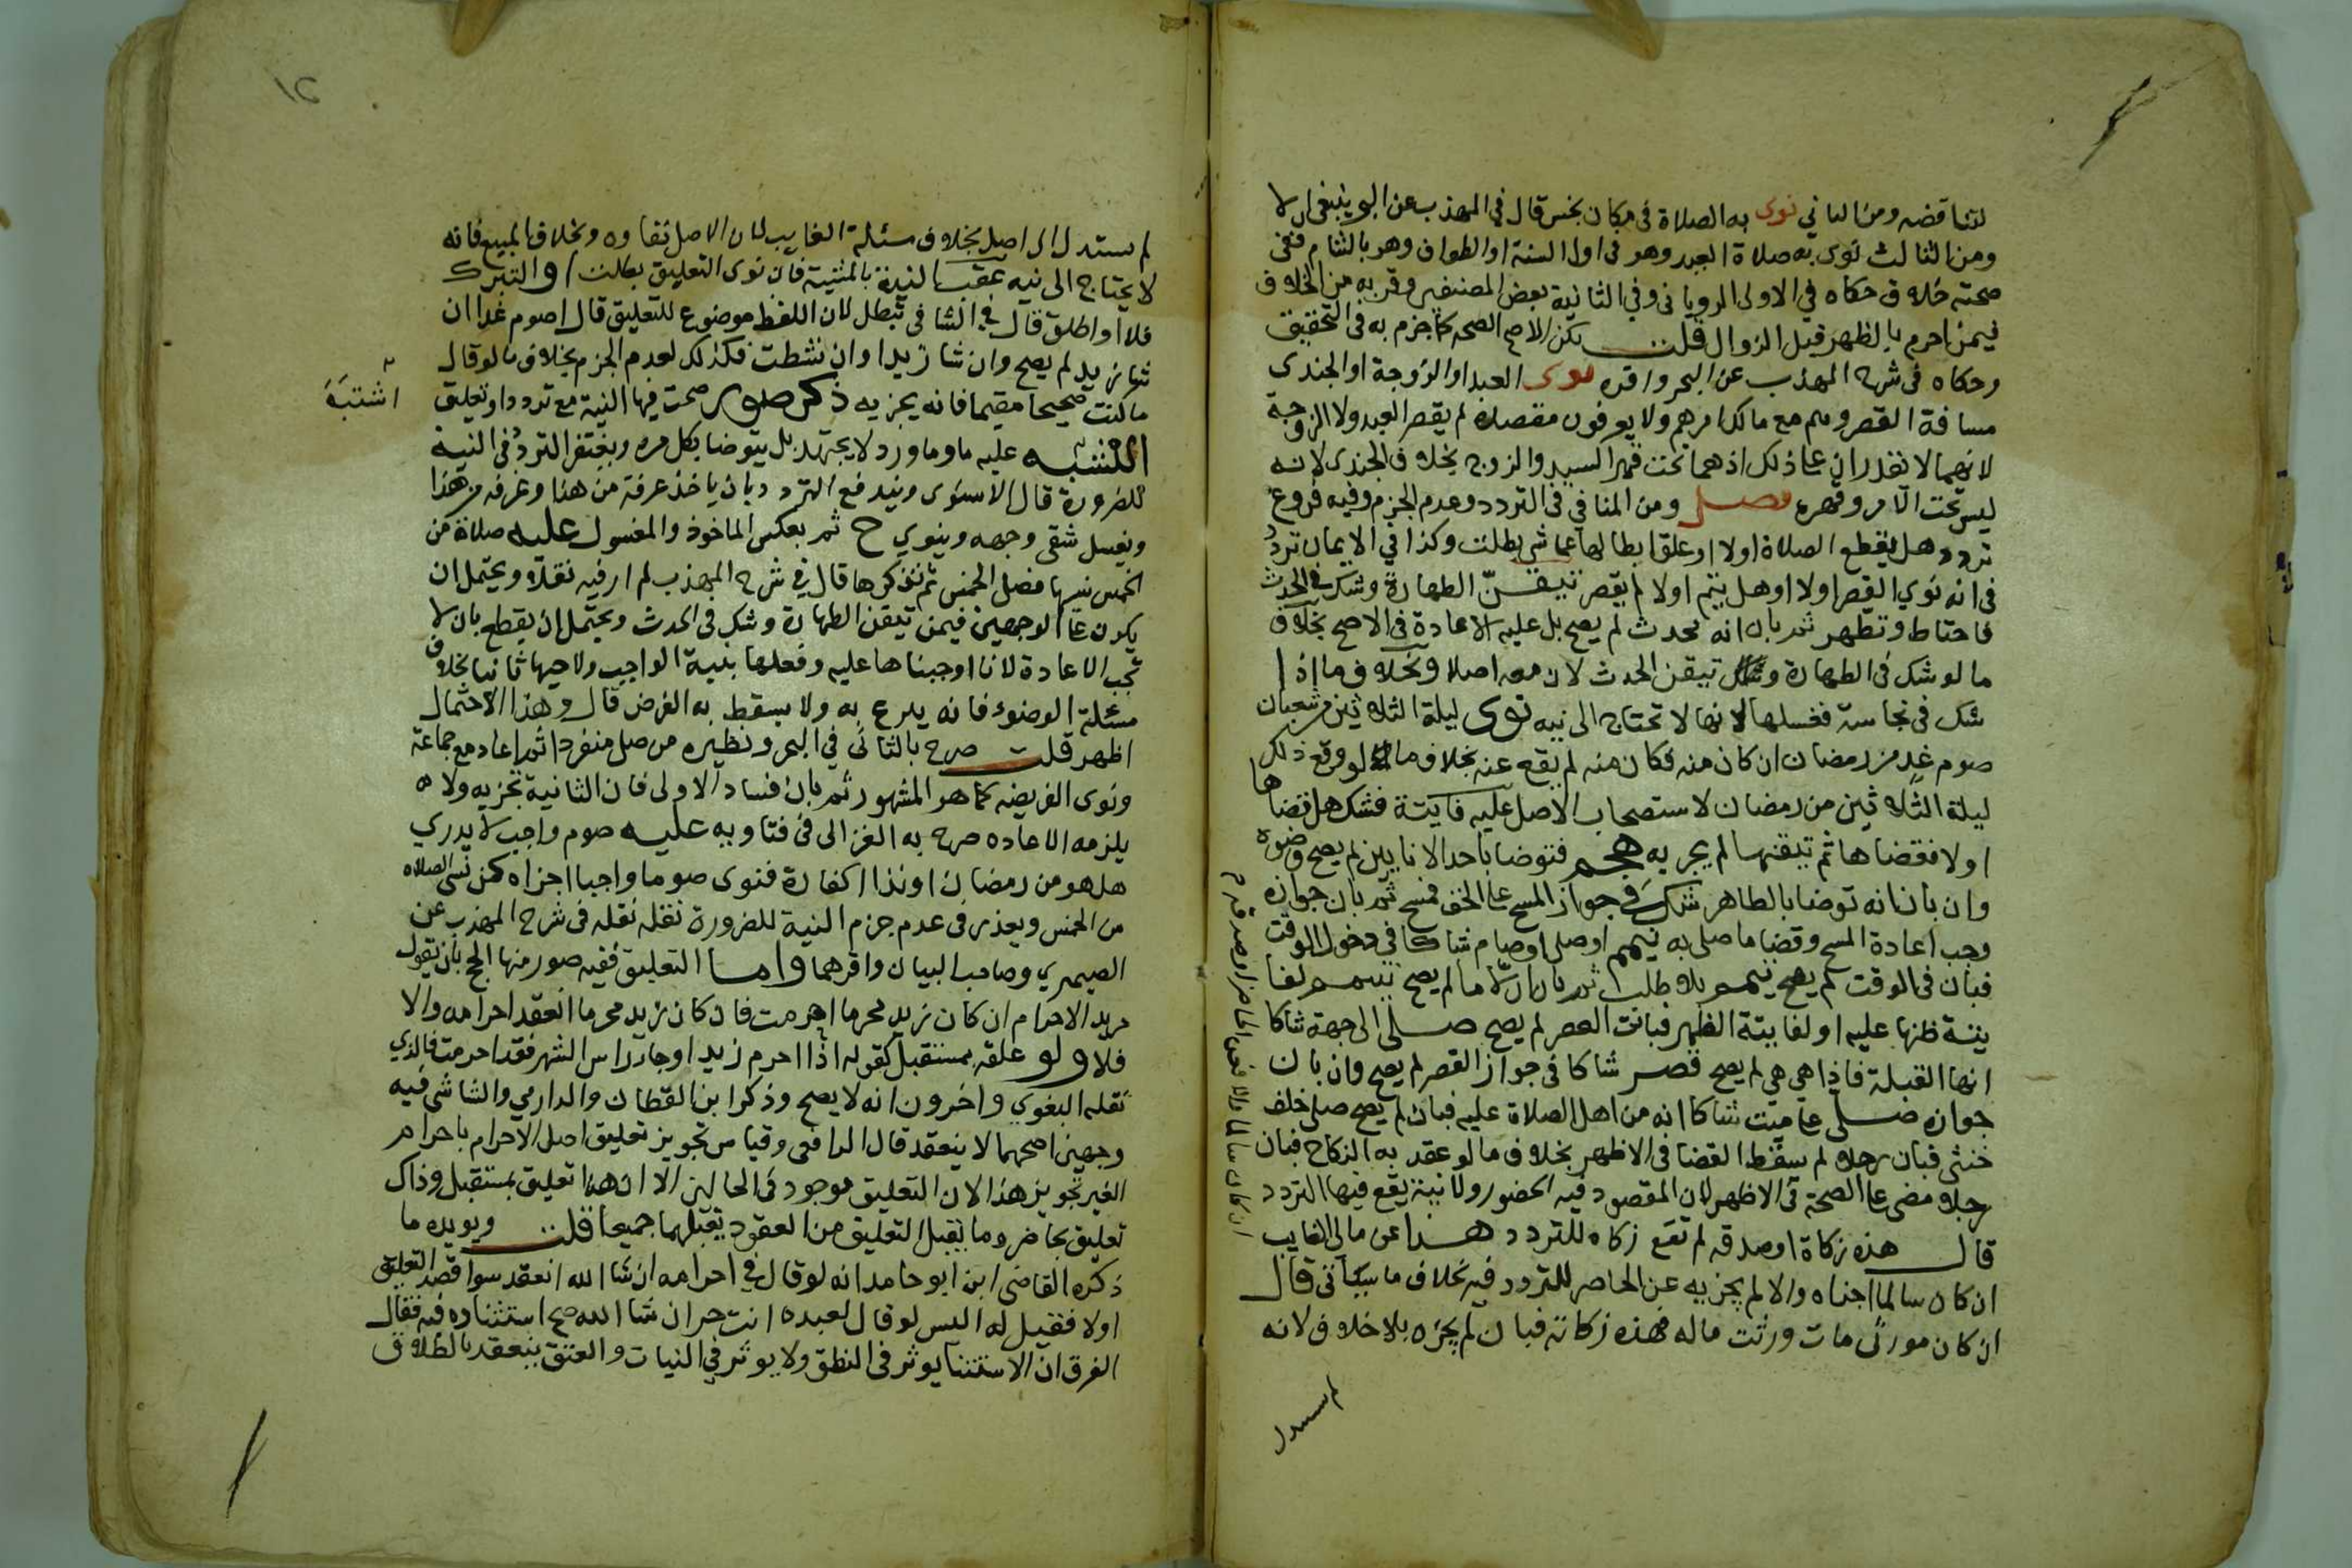 لتناقضه ومن الثاني نوى به الصلاة في مكان نجس قال في المهذب عن البحر ينبغي ان لا
ومن الثالث نوى به صلاة العيد وهو في اول السنة او الطواف وهو بالشام ففي
صحته خلاف حكاه في الاولى الروياني وفي الثانية بعض المصنفين وقربه من الخلاف
فيمن احرم بالظهر قبل الزوال قلت لكن الاصح الصحه كما جزم به في التحقيق
وحكاه في شرح المهذب عن البحر واقره نوى العبد او الزوجة او الجندي
مسافة القصر وهم مع مالك امرهم ولا يعرفون مقصده لم يقصر العبد ولا الزوجة
لانهما لا يقدران على ذلك اذ هما تحت قهر السيد والزوج بخلاف الجندي لانه
ليس تحت الامر وقهره فصل ومن المنافي في التردد وعدم الجزم وفيه فروع
تردد هل يقطع الصلاة اولا او علق ابطالها على شي بطلت وكذا في الايمان تردد
في انه نوي القصر اولا او هل يتم اولا لم يقصر تيقن الطهارة وشك في الحدث
فاحتاط وتطهر ثم بان انه محدث لم يصح بل عليه الاعادة في الاصح بخلاف
ما لو شك في الطهارة و تيقن الحدث لان معه اصلا وبخلاف ما اذا
شك في نجاسة فغسلها لانها لا تحتاج الى نيه نوى ليلة الثلاثين من شعبان
صوم غد من رمضان ان كان منه فكان منه لم يقع عنه بخلاف ما لو وقع ذلك
ليلة الثلاثين من رمضان لاستصحاب الاصل عليه فايتة فشك هل قضاها
اولا فقضاها ثم تيقنها لم يجزيه هجم فتوضا باحد الانايين لم يصح وضوه
وان بان انه توضا بالطاهر شك في جواز المسح على الخف فمسح ثم بان جوازه
وجب اعادة المسح وقضا ما صلى به تيمم او صلى او صام شاكا في دخول الوقت
فبان في الوقت لم يصح تيمم بلا طلب ثم بان ان لا ما لم يصح تيمم لفا
يتة ظنها عليه او لفايتة الظهر فبانت العصر لم يصح صلى الى جهة شاكا
انها القبلة فاذا هي هي لم يصح قصر شاكا في جواز القصر لم يصح وان بان
جوازه صلى على ميت شاكا انه من اهل الصلاة عليه فبان لم يصح صلى خلف
خنثى فبان رجلا لم يسقط القضا في الاظهر بخلاف ما لو عقد به النكاح فبان
رجلا مضى على الصحة في الاظهر لان المقصود فيه الحضور ولا نية يقع فيها التردد
قال هذه زكاة او صدقه لم تقع زكاه للتردد هذا عن مالي الغايب
ان كان سالما اجزاه والا لم يجزيه عن الحاضر للتردد فيه بخلاف ما سيأتي قال
ان كان مورثي مات ورثت ماله فهذه زكاته فبان لم يجزه بلا خلاف لانه
لم يستدل
لم يستدل الى اصل بخلاف مسئلة الغايب لان الاصل بقاوه وبخلاف المبيع فانه
لا يحتاج الى نيه عقب النية بالمشية فان نوى التعليق بطلت او التبرك
فلا او اطلق قال في الشافي تبطل لان اللفظ موضوع للتعليق قال اصوم غدا ان
شا زيد لم يصح وان شا زيد او ان نشطت فكذلك لعدم الجزم بخلاف ما لو قال
ما كنت صحيحا مقيما فانه يجزيه ذكر صور صحت فيها النية مع تردد او تعليق
اشتبه
اشتبه عليه ما وما ورد لا يجتهد بل يتوضا بكل مره ويغتفر التردد في النية
للضرورة قال الاسنوى ويندفع التردد بان ياخذ غرفة من هذا وغرفه من هذا
ويغسل شقي وجهه وينوي ح ثم يعكس الماخوذ والمغسول عليه صلاة من
الخمس نسيها فصلى الخمس ثم تذكرها قال في شرح المهذب لم ار فيه نقلا ويحتمل ان
يكون على الوجهين فيمن تيقن الطهارة وشك في الحدث ويحتمل ان يقطع بان لا
تجب الاعادة لانا اوجبناها عليه وفعلها بنية الواجب ولا يجبها ثانيا بخلاف
مسئلة الوضوء فانه يبرع به ولا يسقط به الفرض قال وهذا الاحتمال
اظهر قلت صرح بالثاني في البحر ونظيره من صلى منفردا ثم اعاد مع جماعة
ونوى الفريضه كما هو المشهور ثم بان فساد الاولى فان الثانية تجزيه ولا
يلزمه الاعاده صرح به الغزالى في فتاويه عليه صوم واجب لا يدري
هل هو من رمضان او نذر او كفارة فنوى صوما واجبا اجزاه كمن نسي الصلاه
من الخمس ويعذر في عدم جزم النية للضرورة نقله في شرح المهذب عن
الصيمري وصاحب البيان واقرهما واما التعليق ففيه صور منها الحج بان يقول
مريد الاحرام ان كان زيد محرما احرمت فان كان زيد محرما انعقد احرامه والا
فلا ولو علقه بمستقبل كقوله اذا احرم زيد او جا راس الشهر فقد احرمت فالذي
نقله البغوي واخرون انه لا يصح وذكر ابن القطان والدارمي والشاشي فيه
وجهين اصحهما لا ينعقد قال الرافعي وقياس تجويز تعليق اصل الاحرام باحرام
الغير تجويز هذا لان التعليق موجود في الحالين الا ان هذا تعليق بمستقبل وذاك
تعليق بحاضر وما يقبل التعليق من العقود يقبلهما جميعا قلت ويويده ما
ذكره القاضى ابن ابو حامد انه لو قال في احرامه ان شا الله انعقد سوا قصد التعليق
اولا فقيل له اليس لو قال لعبده انت حر ان شا الله صح استثناوه فيه فقال
الفرق ان الاستثنا يوثر في النطق ولا يوثر في النيات والعتق ينعقد بالطلاق